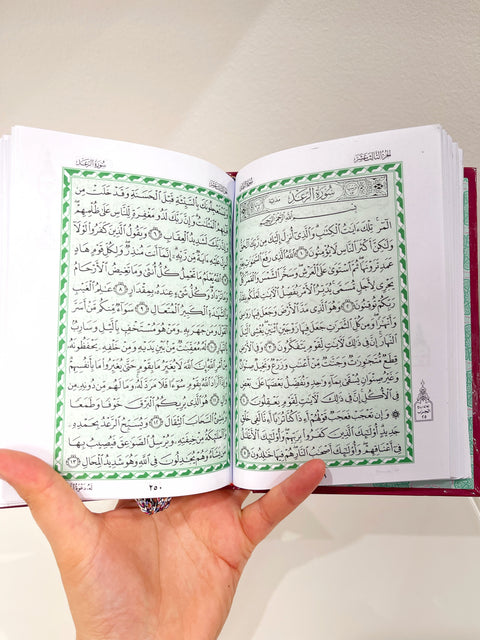 الجزء الثالث عشر
سُورَةُ الرَّعْدِ
بِسْمِ اللَّهِ الرَّحْمَٰنِ الرَّحِيمِ
الٓمٓر ۚ تِلْكَ ءَايَٰتُ ٱلْكِتَٰبِ ۗ وَٱلَّذِىٓ أُنزِلَ إِلَيْكَ مِن رَّبِّكَ ٱلْحَقُّ
وَلَٰكِنَّ أَكْثَرَ ٱلنَّاسِ لَا يُؤْمِنُونَ ١ ٱللَّهُ ٱلَّذِى رَفَعَ ٱلسَّمَٰوَٰتِ بِغَيْرِ
عَمَدٍ تَرَوْنَهَا ۖ ثُمَّ ٱسْتَوَىٰ عَلَى ٱلْعَرْشِ ۖ وَسَخَّرَ ٱلشَّمْسَ وَٱلْقَمَرَ ۖ كُلٌّ
يَجْرِى لِأَجَلٍ مُّسَمًّى ۚ يُدَبِّرُ ٱلْأَمْرَ يُفَصِّلُ ٱلْءَايَٰتِ لَعَلَّكُم بِلِقَآءِ
رَبِّكُمْ تُوقِنُونَ ٢ وَهُوَ ٱلَّذِى مَدَّ ٱلْأَرْضَ وَجَعَلَ فِيهَا رَوَٰسِىَ
وَأَنْهَٰرًا ۖ وَمِن كُلِّ ٱلثَّمَرَٰتِ جَعَلَ فِيهَا زَوْجَيْنِ ٱثْنَيْنِ ۖ يُغْشِى ٱلَّيْلَ
ٱلنَّهَارَ ۚ إِنَّ فِى ذَٰلِكَ لَءَايَٰتٍ لِّقَوْمٍ يَتَفَكَّرُونَ ٣ وَفِى ٱلْأَرْضِ
قِطَعٌ مُّتَجَٰوِرَٰتٌ وَجَنَّٰتٌ مِّنْ أَعْنَٰبٍ وَزَرْعٌ وَنَخِيلٌ صِنْوَانٌ
وَغَيْرُ صِنْوَانٍ يُسْقَىٰ بِمَآءٍ وَٰحِدٍ وَنُفَضِّلُ بَعْضَهَا عَلَىٰ بَعْضٍ
فِى ٱلْأُكُلِ ۚ إِنَّ فِى ذَٰلِكَ لَءَايَٰتٍ لِّقَوْمٍ يَعْقِلُونَ ٤
۞ وَإِن تَعْجَبْ فَعَجَبٌ قَوْلُهُمْ أَءِذَا كُنَّا تُرَٰبًا أَءِنَّا لَفِى خَلْقٍ
جَدِيدٍ ۗ أُو۟لَٰٓئِكَ ٱلَّذِينَ كَفَرُوا۟ بِرَبِّهِمْ ۖ وَأُو۟لَٰٓئِكَ ٱلْأَغْلَٰلُ
فِىٓ أَعْنَاقِهِمْ ۖ وَأُو۟لَٰٓئِكَ أَصْحَٰبُ ٱلنَّارِ ۖ هُمْ فِيهَا خَٰلِدُونَ ٥
سُورَةُ الرَّعْدِ
وَيَسْتَعْجِلُونَكَ بِٱلسَّيِّئَةِ قَبْلَ ٱلْحَسَنَةِ وَقَدْ خَلَتْ مِن
قَبْلِهِمُ ٱلْمَثُلَٰتُ ۗ وَإِنَّ رَبَّكَ لَذُو مَغْفِرَةٍ لِّلنَّاسِ عَلَىٰ ظُلْمِهِمْ ۖ
وَإِنَّ رَبَّكَ لَشَدِيدُ ٱلْعِقَابِ ٦ وَيَقُولُ ٱلَّذِينَ كَفَرُوا۟ لَوْلَآ
أُنزِلَ عَلَيْهِ ءَايَةٌ مِّن رَّبِّهِۦٓ ۗ إِنَّمَآ أَنتَ مُنذِرٌ ۖ وَلِكُلِّ قَوْمٍ هَادٍ
٧ ٱللَّهُ يَعْلَمُ مَا تَحْمِلُ كُلُّ أُنثَىٰ وَمَا تَغِيضُ ٱلْأَرْحَامُ
وَمَا تَزْدَادُ ۖ وَكُلُّ شَىْءٍ عِندَهُۥ بِمِقْدَارٍ ٨ عَٰلِمُ ٱلْغَيْبِ
وَٱلشَّهَٰدَةِ ٱلْكَبِيرُ ٱلْمُتَعَالِ ٩ سَوَآءٌ مِّنكُم مَّنْ أَسَرَّ
ٱلْقَوْلَ وَمَن جَهَرَ بِهِۦ وَمَنْ هُوَ مُسْتَخْفٍۭ بِٱلَّيْلِ وَسَارِبٌۢ
بِٱلنَّهَارِ ١٠ لَهُۥ مُعَقِّبَٰتٌ مِّنۢ بَيْنِ يَدَيْهِ وَمِنْ خَلْفِهِۦ يَحْفَظُونَهُۥ
مِنْ أَمْرِ ٱللَّهِ ۗ إِنَّ ٱللَّهَ لَا يُغَيِّرُ مَا بِقَوْمٍ حَتَّىٰ يُغَيِّرُوا۟ مَا بِأَنفُسِهِمْ ۗ
وَإِذَآ أَرَادَ ٱللَّهُ بِقَوْمٍ سُوٓءًا فَلَا مَرَدَّ لَهُۥ ۚ وَمَا لَهُم مِّن دُونِهِۦ مِن
وَالٍ ١١ هُوَ ٱلَّذِى يُرِيكُمُ ٱلْبَرْقَ خَوْفًا وَطَمَعًا
وَيُنشِئُ ٱلسَّحَابَ ٱلثِّقَالَ ١٢ وَيُسَبِّحُ ٱلرَّعْدُ بِحَمْدِهِۦ
وَٱلْمَلَٰٓئِكَةُ مِنْ خِيفَتِهِۦ وَيُرْسِلُ ٱلصَّوَٰعِقَ فَيُصِيبُ بِهَا
مَن يَشَآءُ وَهُمْ يُجَٰدِلُونَ فِى ٱللَّهِ وَهُوَ شَدِيدُ ٱلْمِحَالِ ١٣
٢٥٠